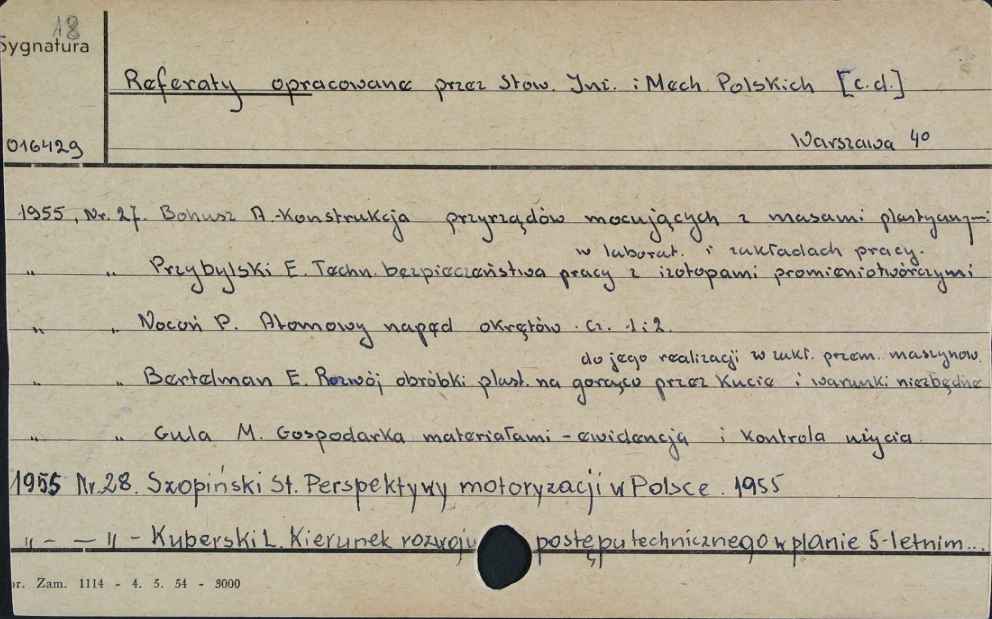 18
Sygnatura
Referaty opracowane przez Stow. Inż. i Mech. Polskich [c.d.]
016429
Warszawa 4°
1955, Nr. 27. Bohusz A.-Konstrukcja przyrządów mocujących z masami plastycznymi
w laborat. i zakładach pracy.
" " Przybylski E. Techn. bezpieczeństwa pracy z izotopami promieniotwórczymi
" " Nocoń P. Atomowy napęd okrętów. Cz. 1 i 2.
do jego realizacji w zakł. przem. maszynow.
" " Bertelman E. Rozwój obróbki plast. na gorąco przez Kucie i warunki niezbędne
" " Gula M. Gospodarka materiałami - ewidencja i kontrola użycia
1955 Nr.28. Szopiński St. Perspektywy motoryzacji w Polsce. 1955
" - — " - Kuberski L. Kierunek rozwoju postępu technicznego w planie 5-letnim...
or. Zam. 1114 - 4. 5. 54 - 3000